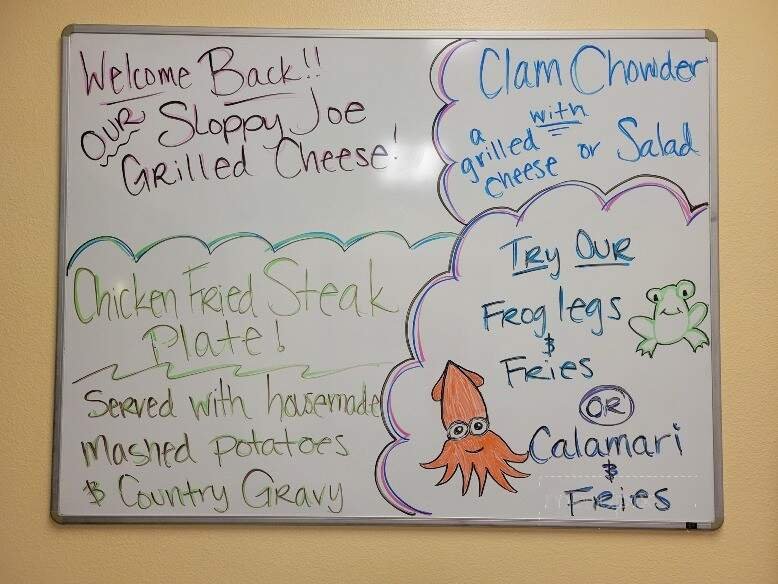 Welcome Back!!
OUR Sloppy Joe
Grilled Cheese!
Clam Chowder
with
a grilled cheese or Salad
Chicken Fried Steak
Plate!
Served with housemade
mashed potatoes
& Country Gravy
Try OUR
Frog legs
&
Fries
OR
Calamari
&
Fries